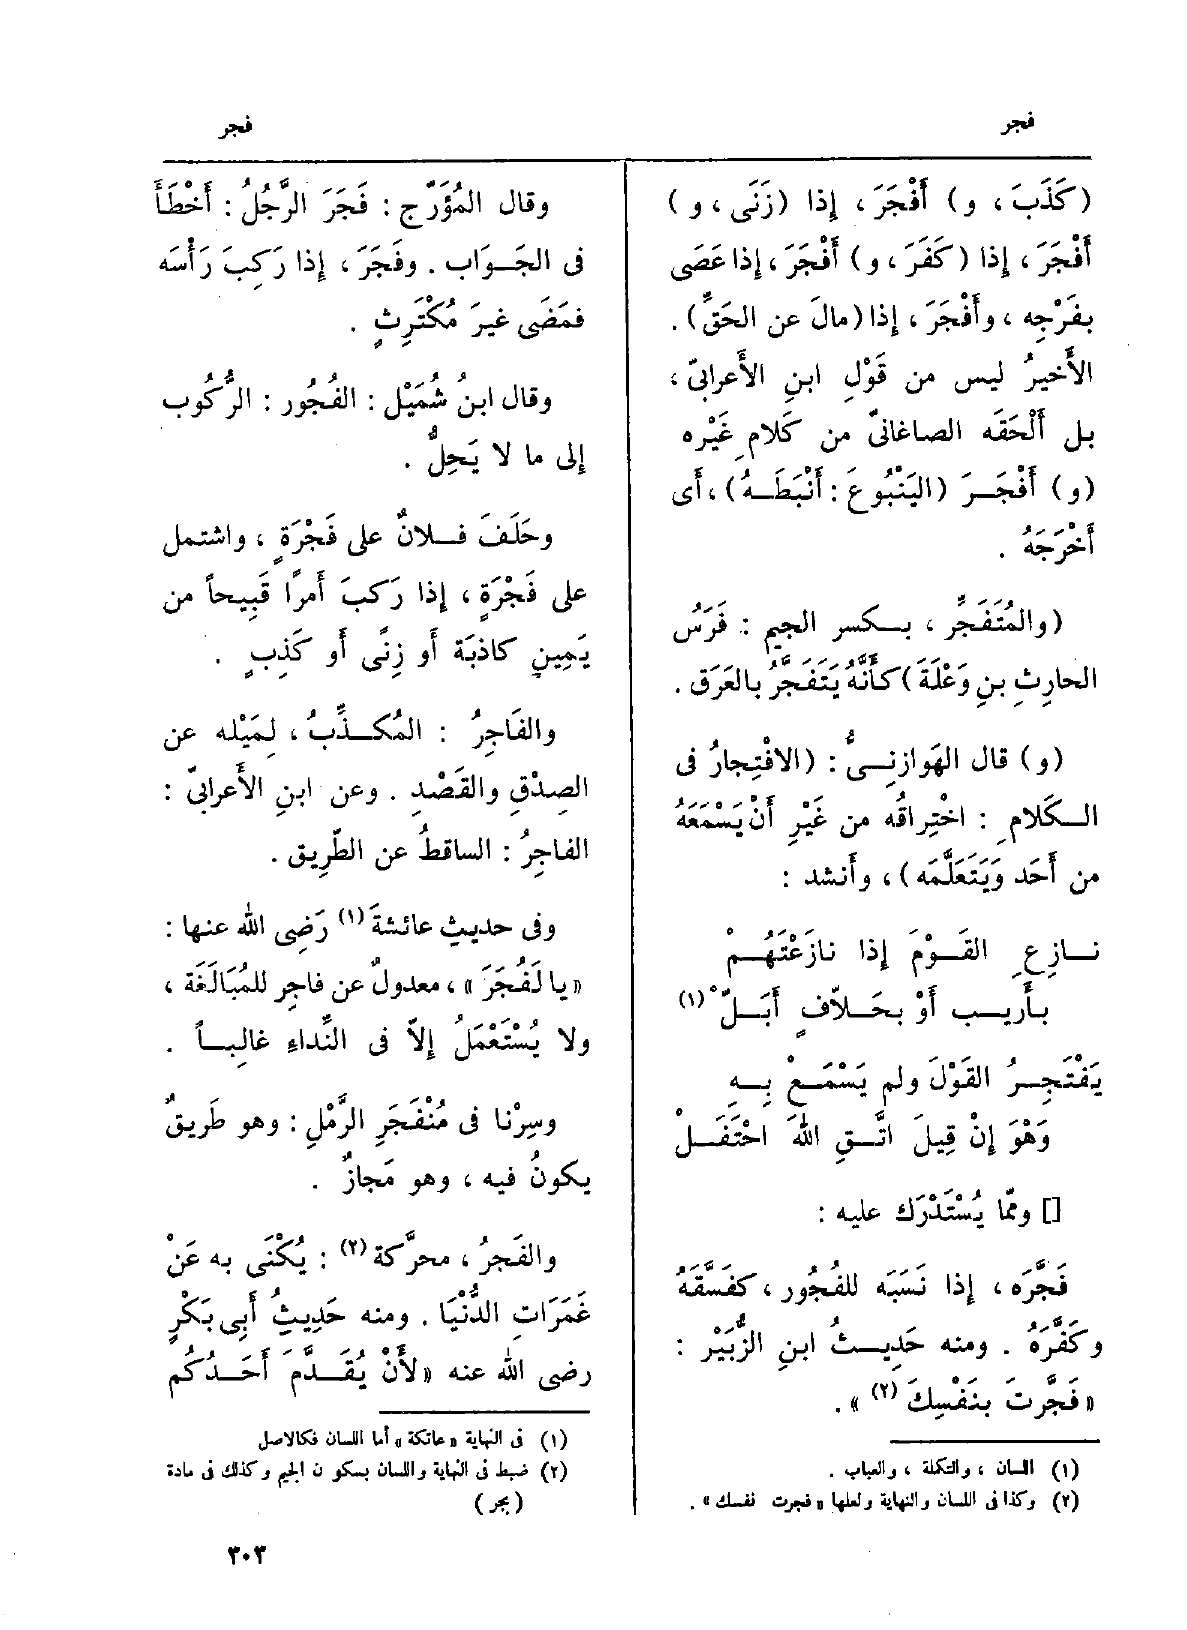 فجر
فجر
(كَذَبَ ، و) أَفْجَرَ ، إِذا (زَنَى ، و)
أَفْجَرَ ، إِذا (كَفَرَ ، و) أَفْجَرَ ، إِذا عَصَى
بفَرْجِه ، وأَفْجَرَ ، إِذا (مالَ عن الحَقِّ) .
الأَخيرُ ليس من قَوْلِ ابنِ الأَعرابيّ ،
بل أَلْحَقَه الصاغانىّ من كَلام غَيْرِه
(و) أَفْجَــرَ (اليَنْبُوعَ : أَنْبَطَــهُ) ، أَى
أَخْرَجَهُ .
(والمُتَفَجِّر ، بــكسر الجيم : فَرَسُ
الحارِثِ بنِ وَعْلَةَ) كأَنَّهُ يَتَفَجَّرُ بالعَرَق .
(و) قال الهَوازنِــىُّ : (الافْتِجارُ فى
الــكَلامِ : اخْتِراقُه من غَيْرِ أَنْ يَسْمَعَهُ
من أَحَد وَيَتَعَلَّمَه) ، وأَنشد :
نــازِعِ القَــوْمَ إِذا نازَعْتَهُــمْ
بأَريــب أَوْ بحَــلاَّفٍ أَبَــلّْ (١)
يَفْتَجِــرُ القَوْلَ ولم يَسْمَــعْ بِــهِ
وَهْوَ إِنْ قِيلَ اتَّــقِ اللهَ احْتَفَــلْ
[] وممّا يُسْتَدْرَك عليه :
فَجَّرَه ، إِذا نَسَبَه للفُجُور ، كفَسَّقَهُ
وكَفَّرَهُ . ومنه حَدِيــثُ ابنِ الزُّبَيْر :
« فَجَّرتَ بنَفْسِكَ (٢) » .
(١) اللسان ، والتكلة ، والعباب .
(٢) وكذا فى اللسان والنهاية ولعلها « فجرت نفسك » .
وقال المُؤَرِّج : فَجَرَ الرَّجُلُ : أَخْطَأَ
فى الجَــوَاب . وفَجَرَ ، إِذا رَكِبَ رَأْسَه
فمَضَى غيرَ مُكْتَرِثٍ .
وقال ابنُ شُمَيْل : الفُجُور : الرُّكُوب
إِلى ما لا يَحِلُّ .
وحَلَفَ فــلانٌ على فَجْرَةٍ ، واشتمل
على فَجْرَةٍ ، إِذا رَكبَ أَمرًا قَبِيحاً من
يَمِينٍ كاذبَة أَو زِنًى أَو كَذِبٍ .
والفَاجِرُ : المُكــذِّبُ ، لِمَيْله عن
الصِدْقِ والقَصْدِ . وعن ابنِ الأَعرابىّ :
الفاجِرُ : الساقطُ عن الطَّرِيق .
وفى حديثِ عائشةَ (١) رَضِى الله عنها :
« يا لَفُجَرَ » ، معدولٌ عن فاجِرٍ للمُبَالَغَة ،
ولا يُسْتَعْمَلُ إِلاّ فى النِّداءِ غالِبــاً .
وسِرْنا فى مُنْفَجَرِ الرَّمْلِ : وهو طَرِيقٌ
يكونُ فيه ، وهو مَجازٌ .
والفَجَرُ ، محرَّكة (٢) : يُكْنَى به عَنْ
غَمَرَات الدُّنْيَا . ومنه حَدِيثُ أَبِى بَكْرٍ
رضى الله عنه « لأَنْ يُقَــدَّمَ أَحَــدُكُم
(١) فى النهاية « عاتكة » أما اللسان فكالاصل
(٢) ضبط فى النهاية واللسان بسكون الجيم وكذلك فى مادة
(بجر)
٣٠٣